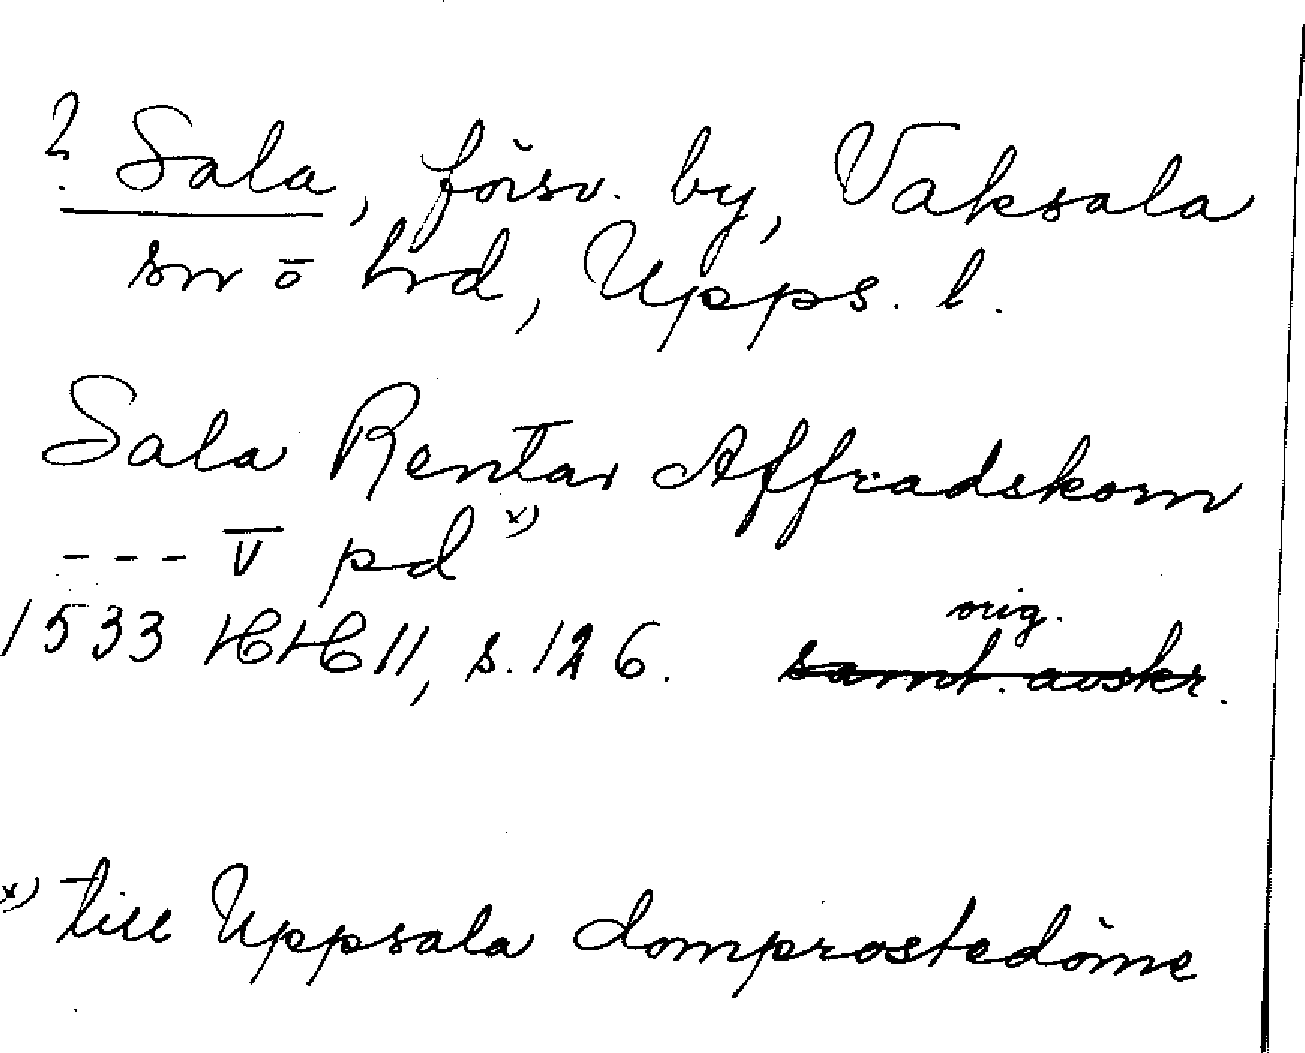 ? Sala, försv. by, Vaksala
sn o hd, Upps. l.
Sala Rentar Affradskorn
--- V pd x)
1533 HH 11, s. 126. orig. samt. avskr.
x) till Uppsala domprostedöme